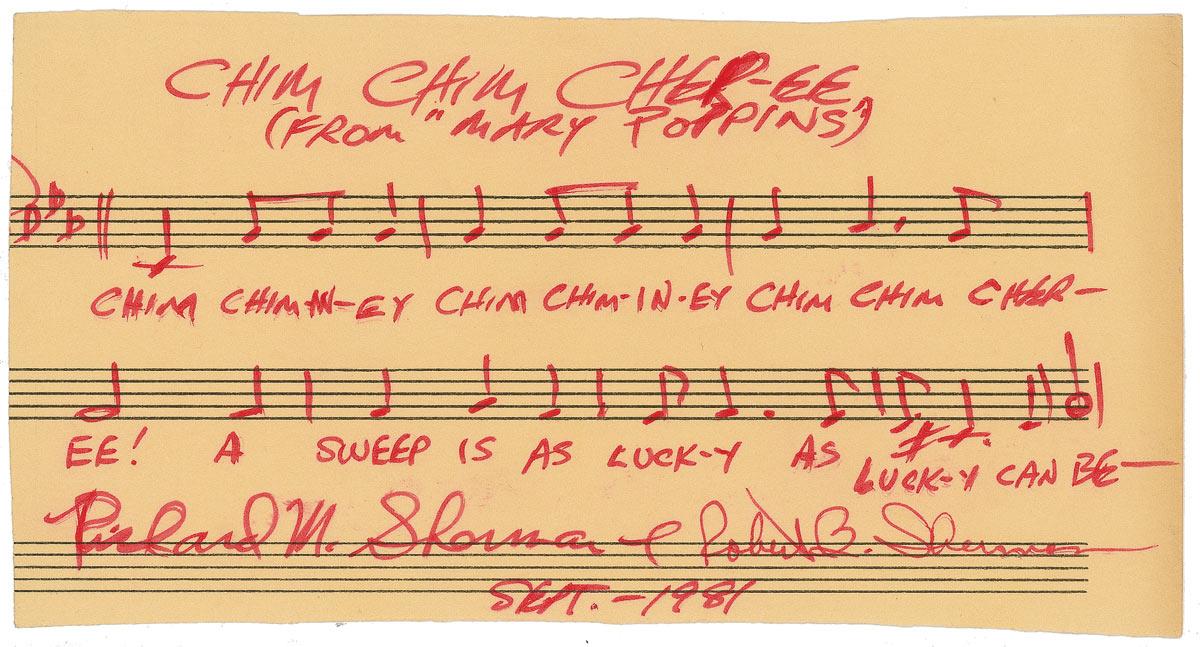 CHIM CHIM CHER-EE
(FROM "MARY POPPINS")
CHIM CHIM-IN-EY CHIM CHIM-IN-EY CHIM CHIM CHER-
EE! A SWEEP IS AS LUCK-Y AS LUCK-Y CAN BE—
Richard M. Sherman & Robert B. Sherman
SEPT. - 1981